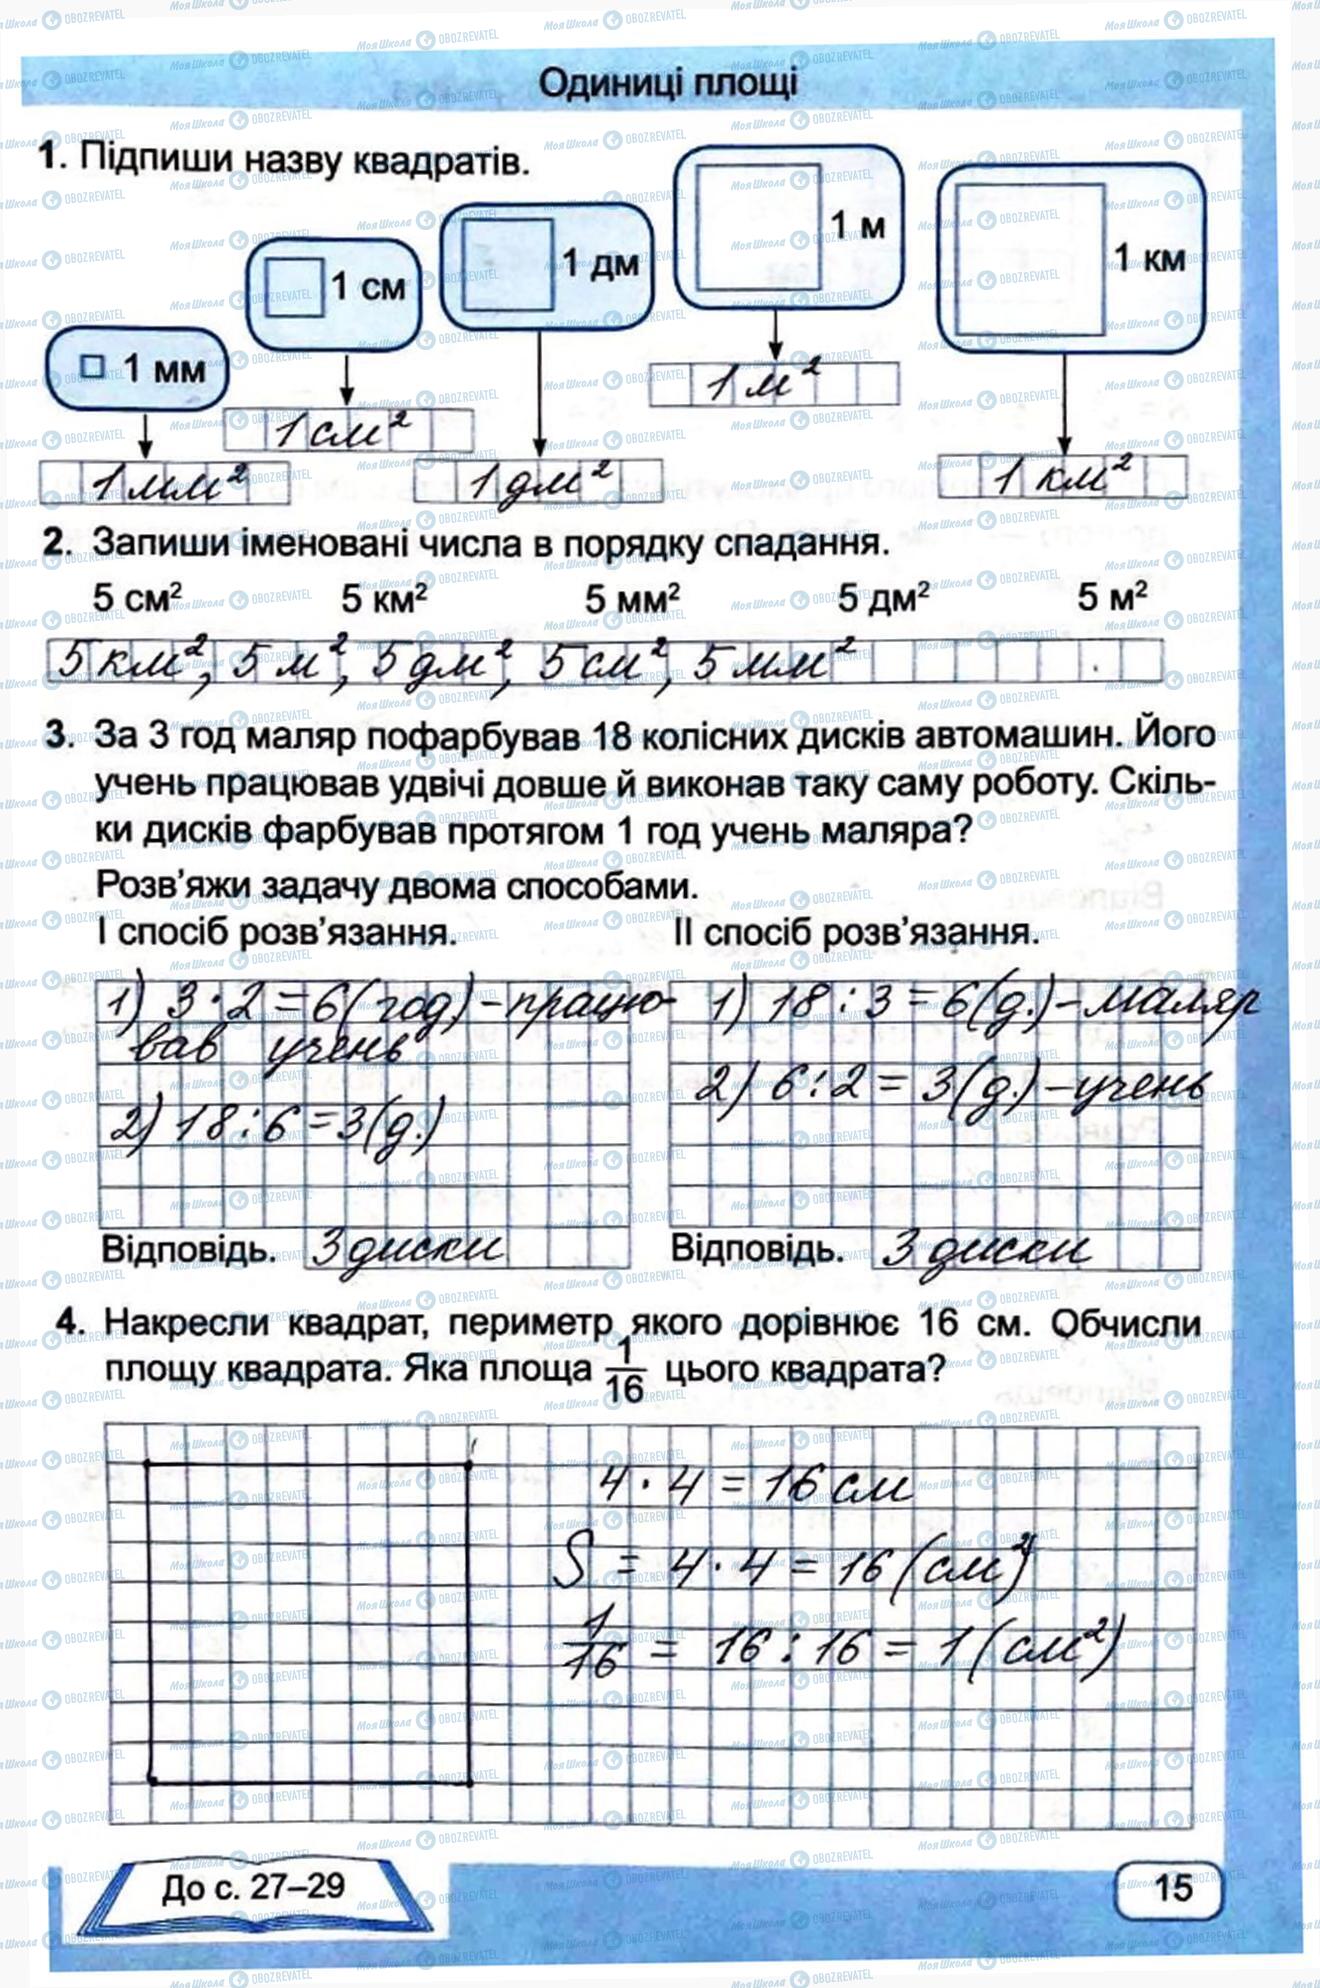 Одиниці площі
1. Підпиши назву квадратів.
1 мм
1 см
1 дм
1 м
1 км
1 мм²
1 см²
1 дм²
1 м²
1 км²
2. Запиши іменовані числа в порядку спадання.
5 см² 5 км² 5 мм² 5 дм² 5 м²
5 км², 5 м², 5 дм², 5 см², 5 мм²
3. За 3 год маляр пофарбував 18 колісних дисків автомашин. Його
учень працював удвічі довше й виконав таку саму роботу. Скіль-
ки дисків фарбував протягом 1 год учень маляра?
Розв’яжи задачу двома способами.
І спосіб розв’язання.
1) 3 · 2 = 6 (год) – працю-
вав учень
2) 18 : 6 = 3 (д.)
Відповідь. 3 диски
ІІ спосіб розв’язання.
1) 18 : 3 = 6 (д.) – маляр
2) 6 : 2 = 3 (д.) – учень
Відповідь. 3 диски
4. Накресли квадрат, периметр якого дорівнює 16 см. Обчисли
площу квадрата. Яка площа 1/16 цього квадрата?
4 · 4 = 16 см
S = 4 · 4 = 16 (см²)
1/16 = 16 : 16 = 1 (см²)
До с. 27–29
15
МояШкола OBOZREVATEL